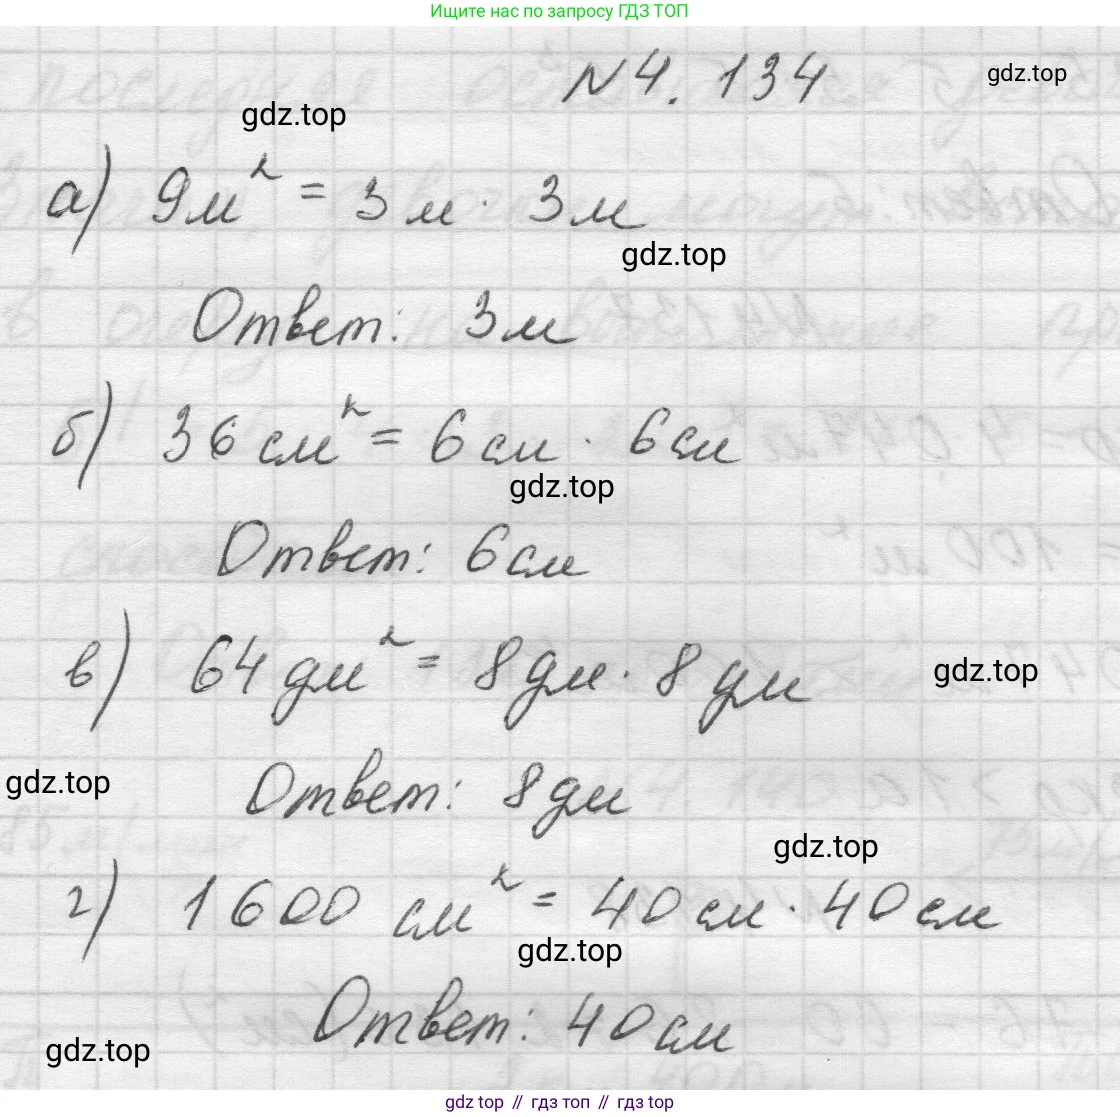 Ищите нас по запросу ГДЗ ТОП
№4.134
gdz.top
gdz.top
а) 9м² = 3м · 3м
gdz.top
Ответ: 3м
б) 36см² = 6см · 6см
gdz.top
Ответ: 6см
в) 64дм² = 8дм · 8дм
gdz.top
gdz.top
Ответ: 8дм
gdz.top
г) 1600 см² = 40см · 40см
gdz.top
Ответ: 40см
gdz.top
gdz top // гдз топ // gdz top